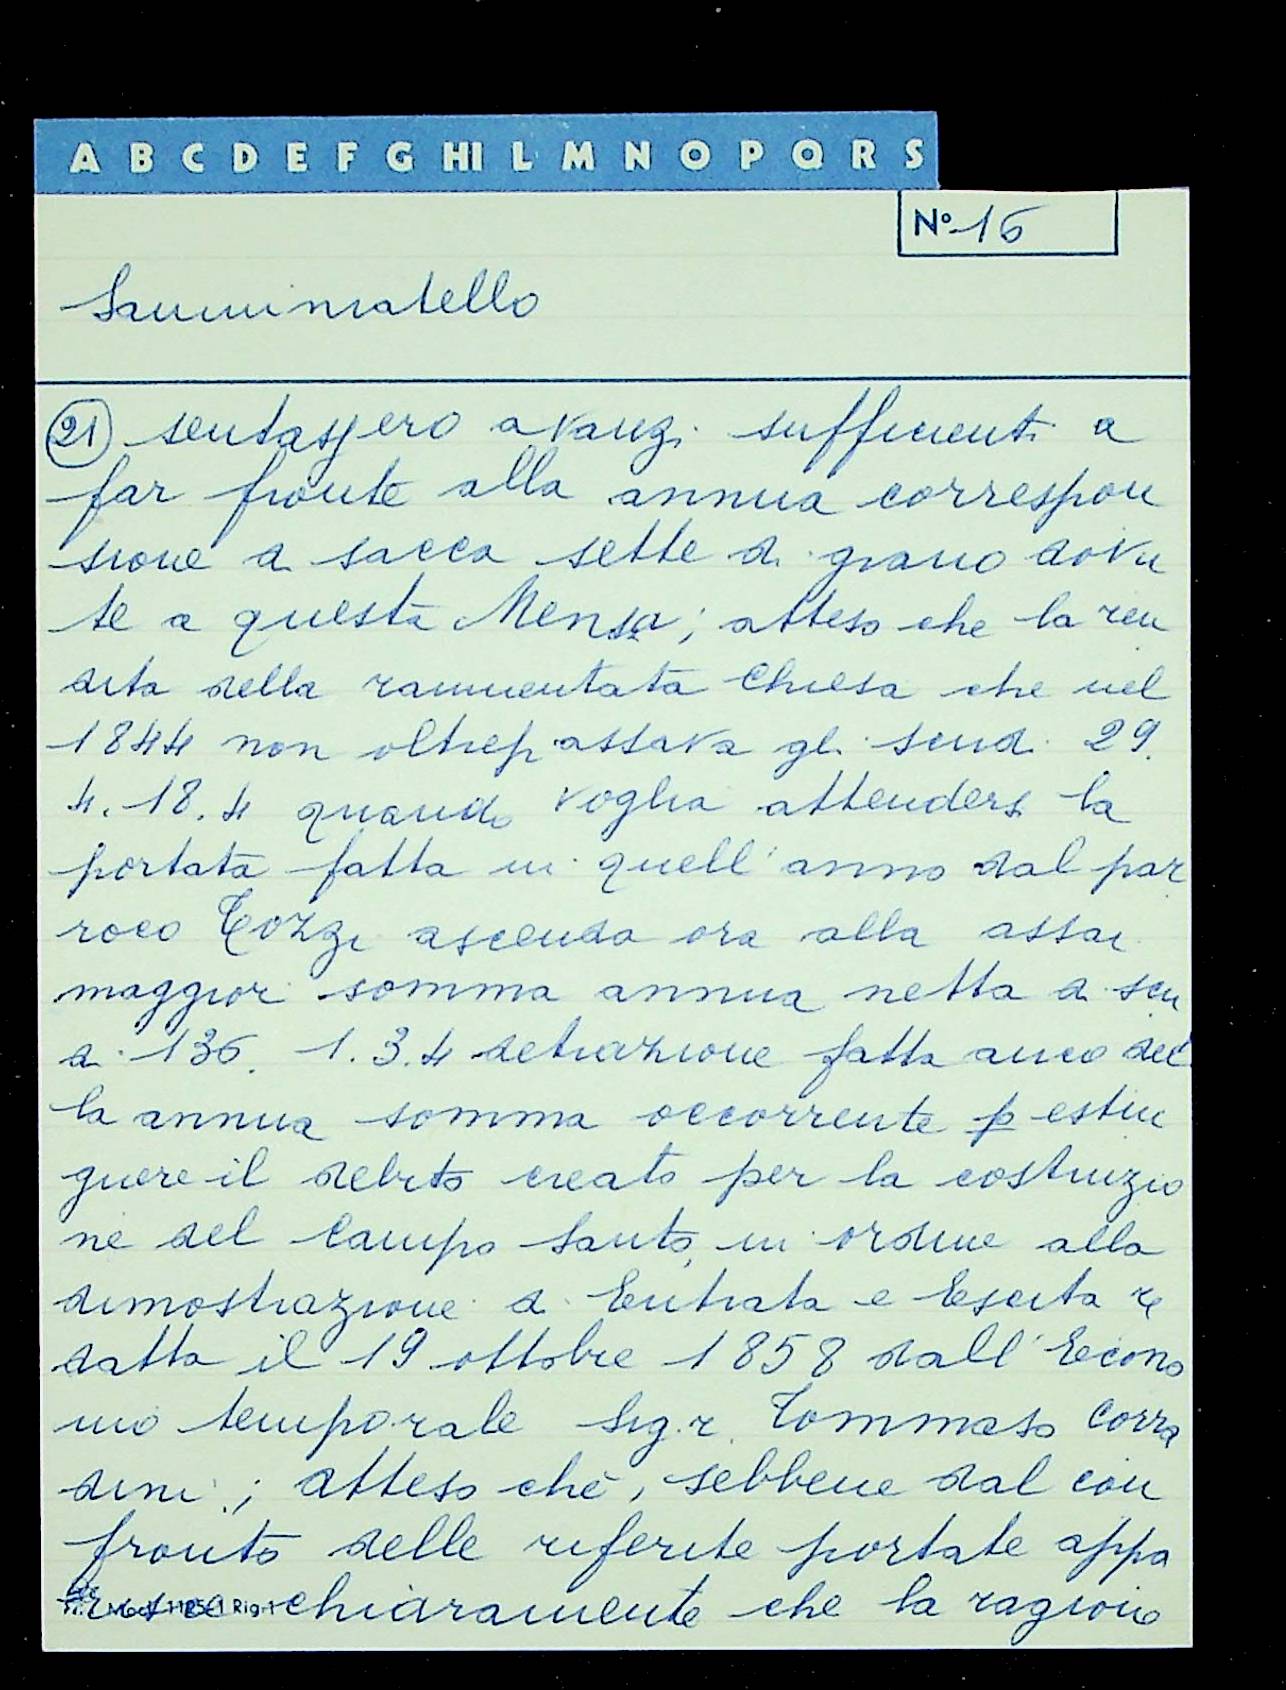 A B C D E F G HI L M N O P Q R S
No 16
Samminiatello
21 sentassero avanzi sufficienti a
far fronte alla annua correspon
sione di sacca sette di grano dovu
te a questa Mensa; atteso che la ren
dita della rammentata Chiesa che nel
1844 non oltrepassava gli scudi 29.
4. 18. 4 quando voglia attendersi la
portata fatta in quell'anno dal par
roco Tozzi ascenda ora alla assai
maggior somma annua netta di scu
di 136. 1. 3. 4 detrazione fatta anco del
la annua somma occorrente p estin
guere il debito creato per la costruzio
ne del Campo Santo, in ordine alla
dimostrazione di Entrata e Escita re
datta il 19 ottobre 1858 dall'Econo
mo temporale Sig.r Tommaso Corra
dini; atteso che, sebbene dal con
fronto delle riferite portate appa
risse chiaramente che la ragione